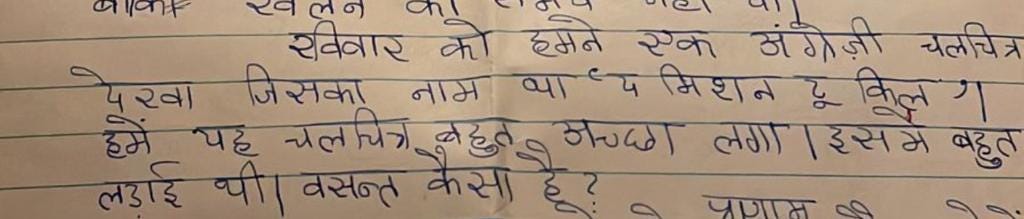 खेलने का समय नहीं था।
रविवार को हमने एक अंग्रेज़ी चलचित्र
देखा जिसका नाम था “द मिशन टू किल”।
हमें यह चलचित्र बहुत अच्छा लगा। इसमें बहुत
लड़ाई थी। वसन्त कैसा है?
प्रणाम